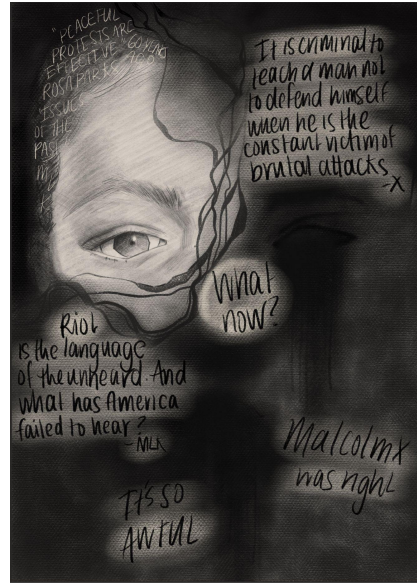 "PEACEFUL
PROTESTS ARE
EFFECTIVE" 60 YEARS
ROSA PARKS AGO
ISSUES
OF THE
PAST
It is criminal to
teach a man not
to defend himself
when he is the
constant victim of
brutal attacks
-X
What
now?
Riot
is the language
of the unheard. And
what has America
failed to hear?
-MLK
Malcolm X
was right
IT'S SO
AWFUL